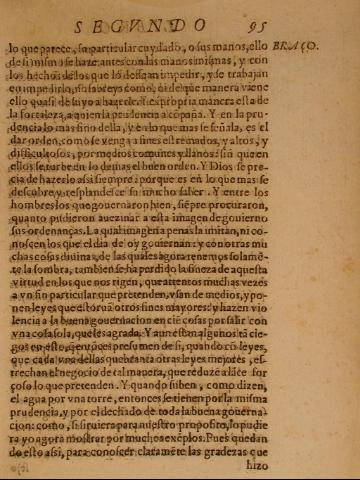 SEGVNDO 95
lo que parece, su particular cuydado, o sus manos, ello BRAÇO.
de si mismo se haze: antes con las manos mismas, y con
los hechos de los que lo dessean impedir, y se trabajan
en impedirlo, sin
ello quasi de suyo a hazerse. propria manera esta de
la fortaleza, a quien la prudencia acõpaña. Y en la pru-
dencia lo mas fino della, y en lo que mas se señala, es el
dar orden, como se venga a fines estremados, y altos, y
difficultosos, por medios comunes y llanos: sin que en
ellos se turbe en lo demas el buen orden. Y Dios se pre-
cia de hazerlo assi siempre: porque es en lo que mas se
descubre y resplandesce su mucho saber. Y entre los
hombres los que gouernaron bien, siẽpre procuraron,
quanto pudieron auezinar a esta imagen de gouierno
sus ordenanças. La qual imagẽ apenas la imitan, ni co-
noscen los que el dia de oy gouiernan: y cõ otras mu
chas cosas diuinas, de las quales agora tenemos solamẽ-
te la sombra, tambien se ha perdido la fineza de aquesta
virtud en los que nos rigen, que attentos muchas vezes
a vn fin particular que pretenden, vsan de medios, y po-
nen leyes que estoruã otros fines mayores: y hazen vio
lencia a la buena gouernacion en ciẽ cosas por salir con
vna cosa sola, que les agrada. Y aun estan algunos tã cie-
gos en esto, que entonces presumen de si, quando cõ leyes,
que cada vna dellas quebranta otras leyes mejores, es-
trechan el negocio de tal manera, que reduzẽ a lãce for
çoso lo que pretenden. Y quando suben, como dizen,
el agua por vna torre, entonces se tienen por la misma
prudencia, y por el dechado de toda la buena gouerna-
cion: como, si siruiera para nuestro proposito, lo pudie
ra yo agora mostrar por muchos exẽplos. Pues quedan
do esto assi, para conoscer claramẽte las grandezas que
hizo